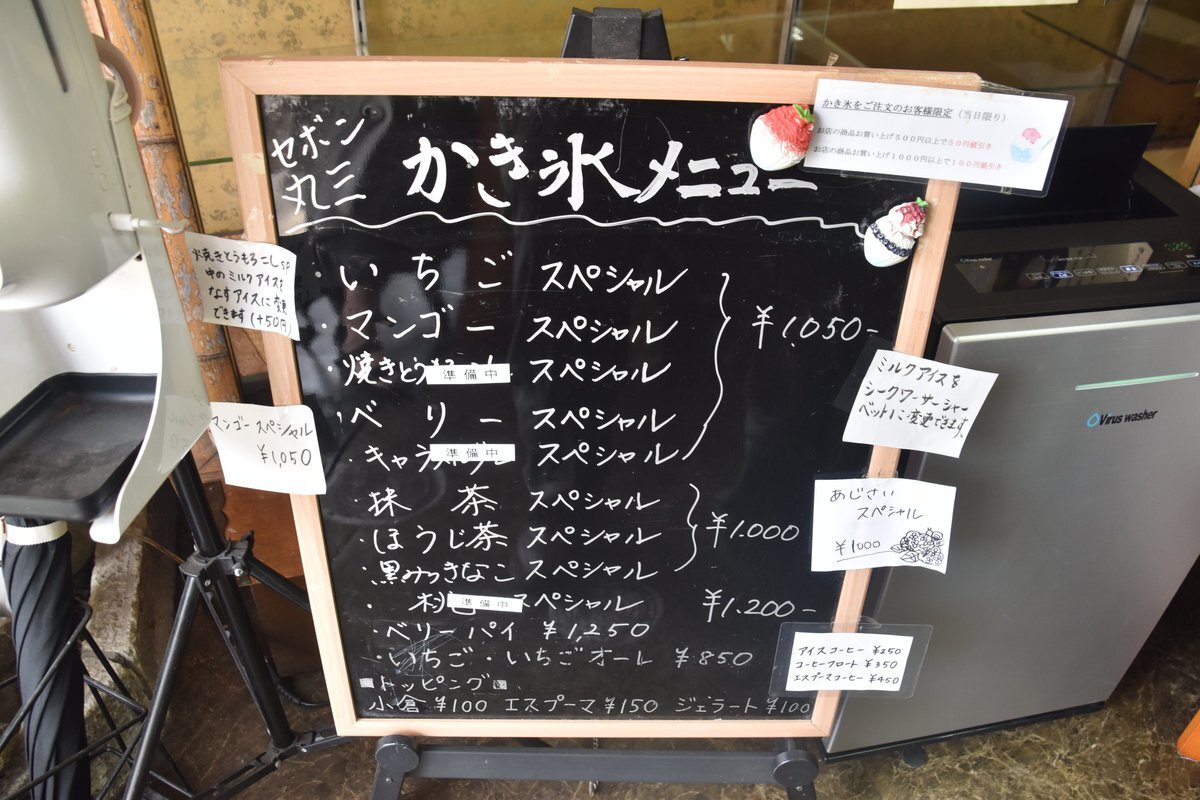 セボン
丸三
かき氷メニュー
・いちご スペシャル
・マンゴー スペシャル
¥1,050-
・焼きとう 準備中 スペシャル
・ベリー スペシャル
・キャラ 準備中 スペシャル
・抹茶 スペシャル
・ほうじ茶 スペシャル
¥1.000
・黒みつきなこ スペシャル
・ 準備中 スペシャル ¥1.200-
・ベリーパイ ¥1,250
・いちご・いちごオーレ ¥850
■トッピング■
小倉¥100 エスプーマ¥150 ジェラート¥100
かき氷をご注文のお客様限定(当日限り)
お店の商品お買い上げ500円以上で50円値引き
お店の商品お買い上げ1000円以上で100円値引き
焼きとうもろこしSP
中のミルクアイスを
なすアイスに変更
できます(+50円)
マンゴースペシャル
¥1,050
ミルクアイスを
シークワーサーシャー
ベットに変更できます。
あじさい
スペシャル
¥1000
アイスコーヒー ¥250
コーヒーフロート ¥350
エスプーマコーヒー ¥450
Virus washer